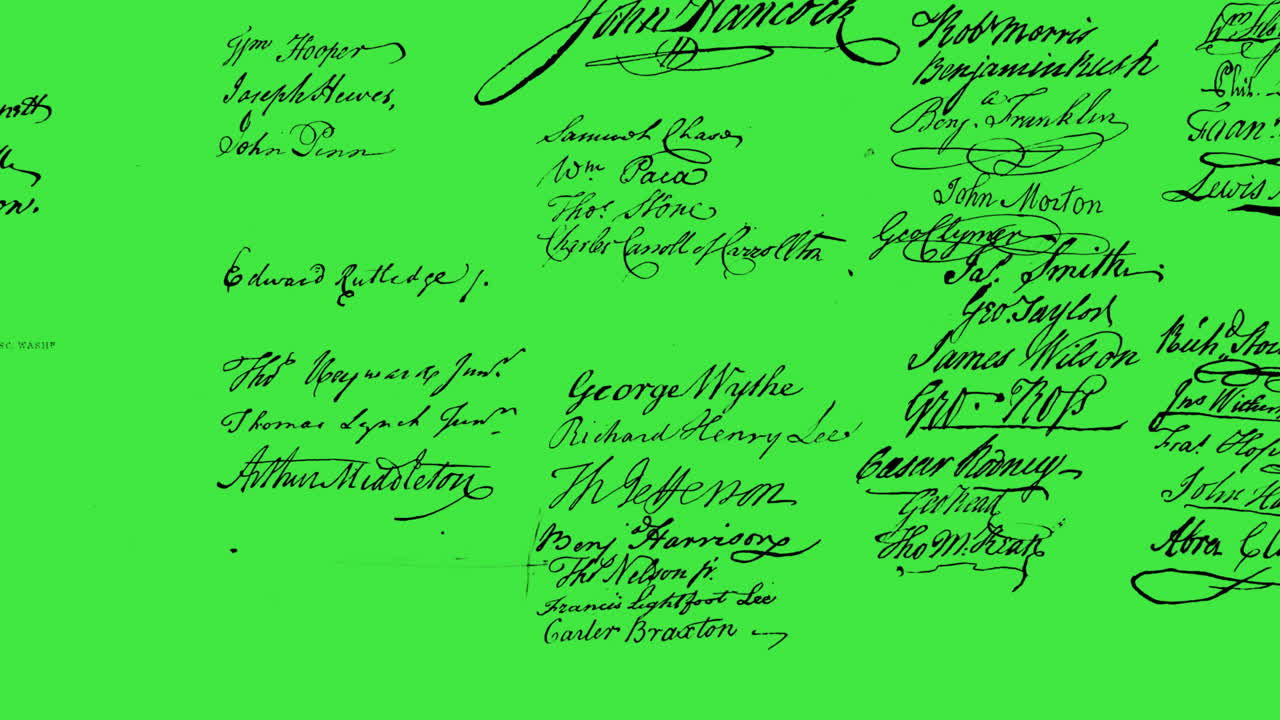 nett
on.
SC. WASHn
Wm Hooper
Joseph Hewes,
John Penn
Edward Rutledge /.
Thos Heyward Junr.
Thomas Lynch Junr.
Arthur Middleton
John Hancock
Samuel Chase
Wm. Paca
Thos. Stone
Charles Carroll of Carrollton
George Wythe
Richard Henry Lee
Th Jefferson
Benj Harrison
Thos Nelson jr.
Francis Lightfoot Lee
Carter Braxton
Robt Morris
Benjamin Rush
Benja. Franklin
John Morton
Geo Clymer
Jas. Smith
Geo. Taylor
James Wilson
Geo. Ross
Caesar Rodney
Geo Read
Tho M:Kean
Wm Fl
Phil.
Fran
Lewis
Richd. Stoc
Jno Wither
Fras. Hop
John Ha
Abra Cl